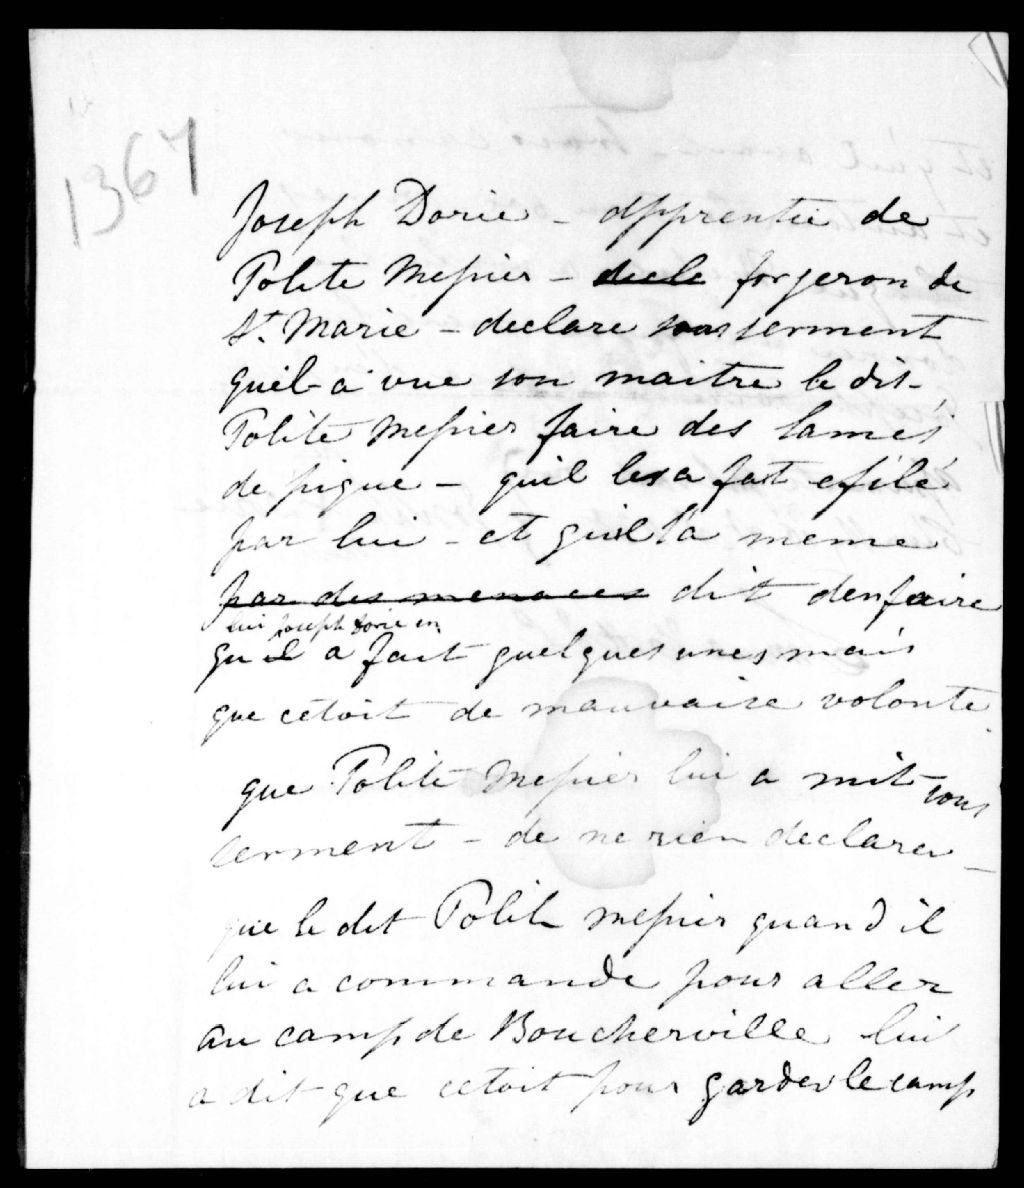 1367
Joseph Dorie - apprentie de
Polite Messier - decle forgeron de
St. Marie - declare sous serment
quil a vue son maitre le dit
Polite Messier faire des lames
de pique - quil les a fait efilé
par lui - et quil la meme
par des menaces dit den faire
lui Joseph Dorie en
qu il a fait quelques unes mais
que cetoit de mauvaise volonte
que Polite Messier lui a mit sous
serment - de ne rien declarer -
que le dit Polite Messier quand il
lui a commande pour aller
au camp de Boucherville lui
a dit que cetoit pour garder le camp